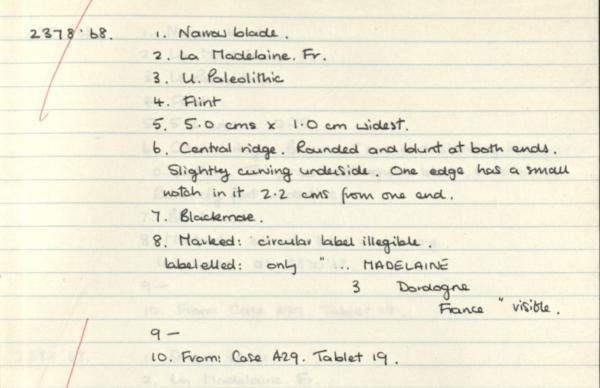 2378.68. 1. Narrow blade.
2. La Madelaine. Fr.
3. U. Paleolithic
4. Flint
5. 5.0 cms x 1.0 cm widest.
6. Central ridge. Rounded and blunt at both ends.
Slightly curving underside. One edge has a small
notch in it 2.2 cms from one end.
7. Blackmore.
8. Marked: circular label illegible.
labelled: only "... MADELAINE
3 Dordogne
France " visible.
9 —
10. From: Case A29. Tablet 19.